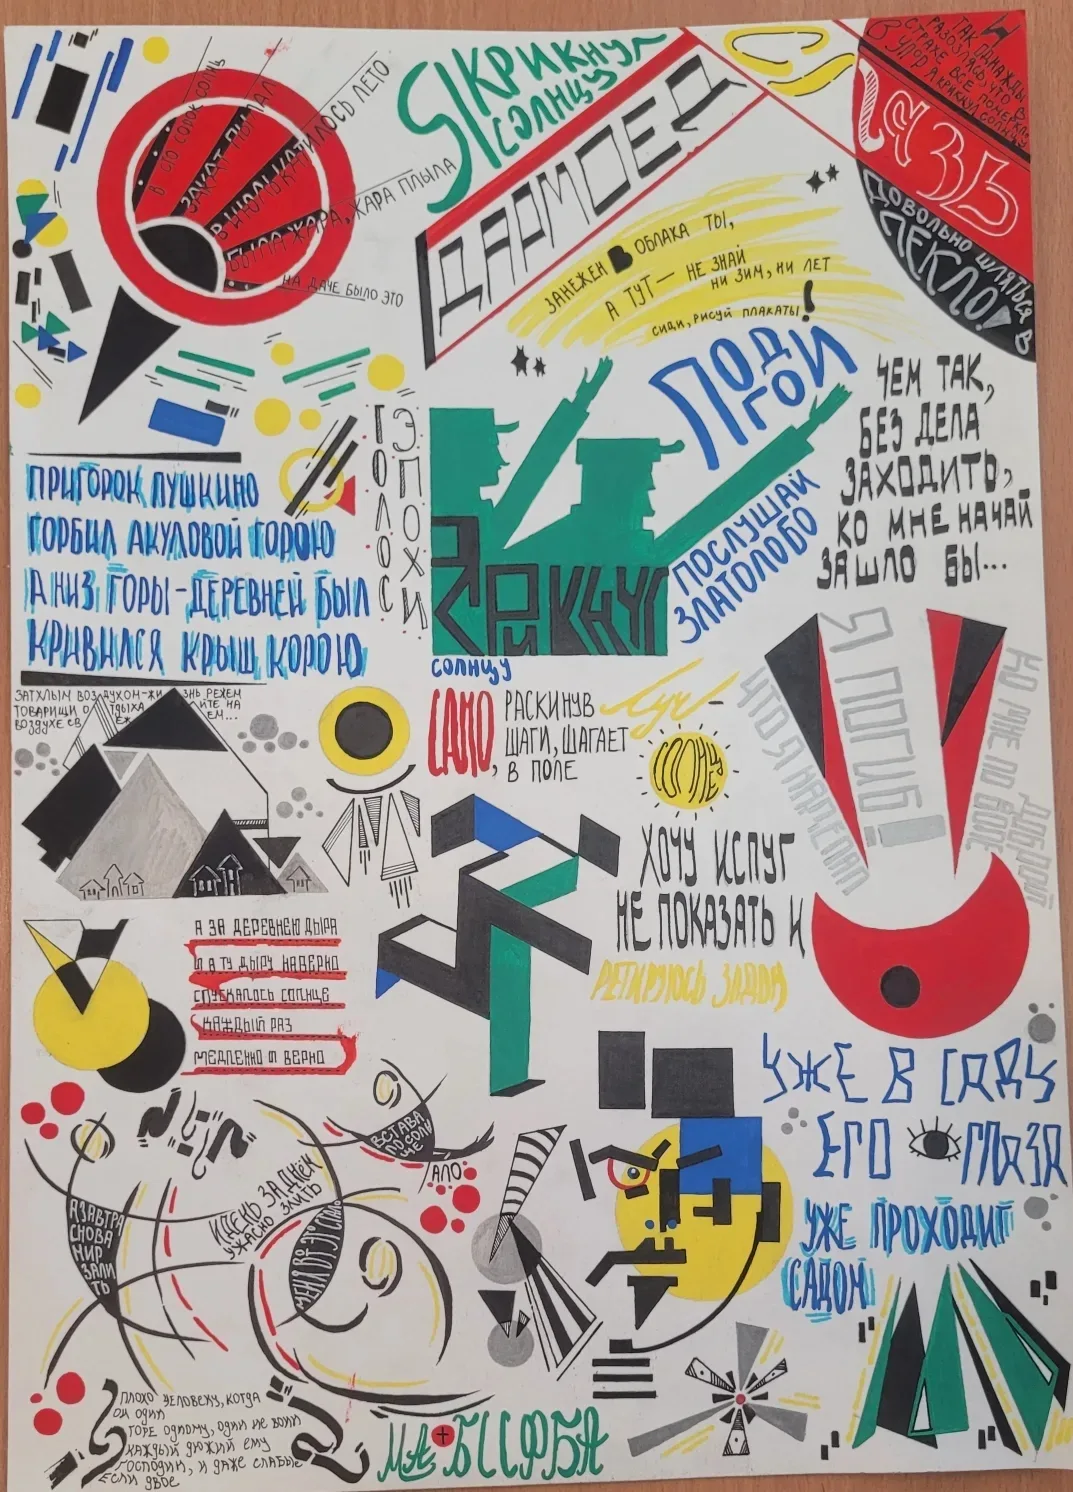 В СТО СОРОК СОЛНЦ
ЗАКАТ ПЫЛАЛ
В ИЮЛЬ КАТИЛОСЬ ЛЕТО
БЫЛА ЖАРА, ЖАРА ПЛЫЛА
НА ДАЧЕ БЫЛО ЭТО
Я КРИКНУЛ
СОЛНЦУ
ДАРМОЕД
ТАК ОДНАЖДЫ
РАЗОЗЛЯСЬ, ЧТО В
СТРАХЕ ВСЕ ПОМЕРКЛО
В УПОР Я КРИКНУЛ СОЛНЦУ
СЛАЗЬ
ДОВОЛЬНО ШЛЯТЬСЯ В
ПЕКЛО!
ЗАНЕЖЕН В ОБЛАКА ТЫ,
А ТУТ — НЕ ЗНАЙ
НИ ЗИМ, НИ ЛЕТ
СИДИ, РИСУЙ ПЛАКАТЫ!
ПОГОДИ
ПОСЛУШАЙ
ЗЛАТОЛОБО
ЧЕМ ТАК,
БЕЗ ДЕЛА
ЗАХОДИТЬ,
КО МНЕ НА ЧАЙ
ЗАШЛО БЫ...
ГОЛОС
ЭПОХИ
ПРИГОРОК ПУШКИНО
ГОРБИЛ АКУЛОВОЙ ГОРОЮ
А НИЗ ГОРЫ - ДЕРЕВНЕЙ БЫЛ
КРИВИЛСЯ КРЫШ КОРОЮ
Я КРИКНУЛ
СОЛНЦУ
ЧТО Я НАДЕЛАЛ
Я ПОГИБ!
КО МНЕ ПО ДОБРОЙ ВОЛЕ
САМО,
РАСКИНУВ
ЛУЧ-
ШАГИ, ШАГАЕТ
В ПОЛЕ
СОЛНЦЕ
ХОЧУ ИСПУГ
НЕ ПОКАЗАТЬ И
РЕТИРУЮСЬ ЗАДОМ
А ЗА ДЕРЕВНЕЮ ДЫРА
И В ТУ ДЫРУ НАВЕРНО
СПУСКАЛОСЬ СОЛНЦЕ
КАЖДЫЙ РАЗ
МЕДЛЕННО И ВЕРНО
УЖЕ В САДУ
ЕГО ГЛАЗА
УЖЕ ПРОХОДИТ
САДОМ
А ЗАВТРА
СНОВА
МИР
ЗАЛИ
ТЬ
ВСТАВА
ЛО СОЛН
ЦЕ
АЛО
И ДЕНЬ ЗА ДНЕМ
УЖАСНО ЗЛИТЬ
МЕНЯ ВОТ ЭТО СТАЛО
ПЛОХО ЧЕЛОВЕКУ, КОГДА
ОН ОДИН
ГОРЕ ОДНОМУ, ОДИН НЕ ВОИН
КАЖДЫЙ ДЮЖИЙ ЕМУ
ГОСПОДИН, И ДАЖЕ СЛАБЫЕ
ЕСЛИ ДВОЕ